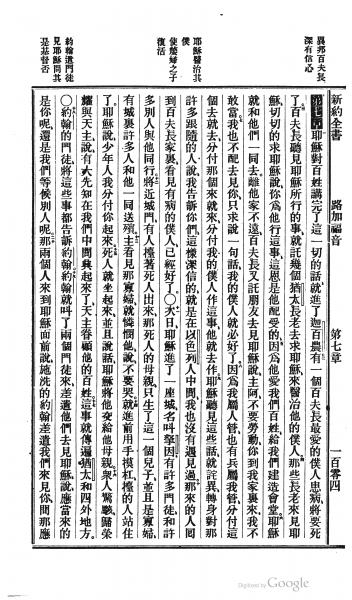 新約全書　路加福音　第七章　一百零四
異邦百夫長
深有信心
耶穌醫治其
僕
使嫠婦之子
復活
約翰遣門徒
見耶穌問其
是基督否
第七章耶穌對百姓講完了這一切的話就進了迦百農有一個百夫長最愛的僕人患病將要死
了百夫長聽見耶穌所行的事就託幾個猶太長老去求耶穌來醫治他的僕人那些長老來見耶
穌切切的求耶穌說你為他行這事這恩是他配受的因為他愛我們百姓給我們建造會堂耶穌
就和他們一同去離他家不遠百夫長又託朋友去見耶穌說主阿不要勞動你到我家裏來我不
敢當我也不配去見你只求說一句話我的僕人就必好了因為我屬人管也有兵屬我管分付這
個去就去分付那個來就來分付我的僕人作這事他就去作耶穌聽見這些話就詫異轉身對那
許多跟隨的人說我告訴你們這樣深信的就是在以色列人中間我也沒有遇見過那來的人囘
到百夫長家裏看見有病的僕人已經好了○次日耶穌進了一座城名叫拏因有許多門徒和許
多別人與他同行將近城門有人擡著死人出來那死人的母親只生了這一個兒子並且是寡婦
有城裏許多人和他一同送殯主看見那寡婦就憐憫他說不要哭就進前用手摸杠擡的人站住
了耶穌說少年人我分付你起來死人就坐起來並且說話耶穌將他交給他母親衆人驚駭歸榮
耀與天主說有大先知在我們中間興起來了天主眷顧他的百姓這事就傳遍猶太和四外地方
○約翰的門徒將這些事都告訴約翰約翰就叫了兩個門徒來差遣他們去見耶穌說應當來的
是你呢還是我們等候別人呢那兩個人來到耶穌面前說施洗的約翰差遣我們來見你問那應
Digitized by Google